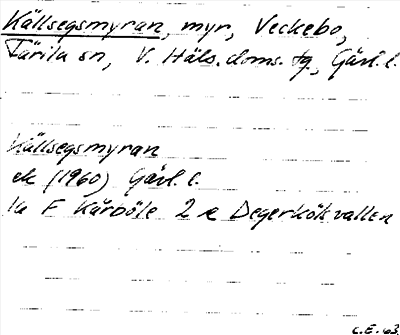 Källsegsmyran, myr, Veckebo,
Färila sn, V. Häls. doms. tg., Gävl. l.
Källsegsmyran
ek (1960) Gävl. l.
la F Kårböle 2 æ Degerkölsvallen
C.E.-63